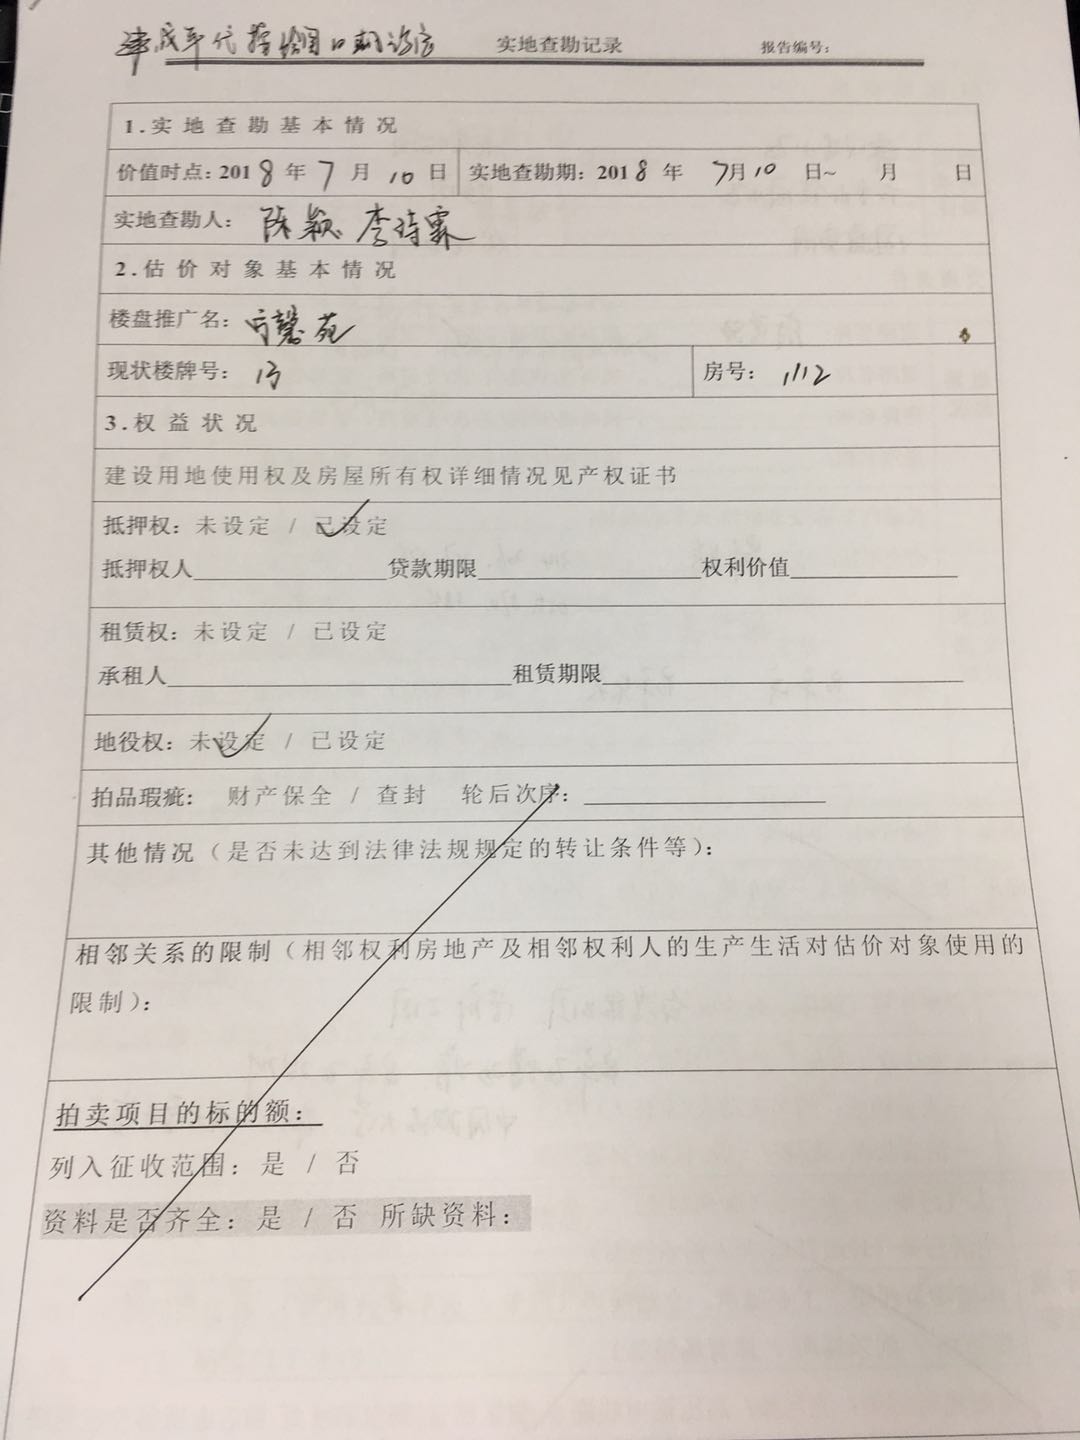 建成年代按绘图日期认定 实地查勘记录 报告编号:
1.实地查勘基本情况
价值时点:2018年7月10日 实地查勘期:2018年 7月10 日~ 月 日
实地查勘人: 陈颖 李诗霖
2.估价对象基本情况
楼盘推广名: 馨苑
现状楼牌号: 13 房号: 1112
3.权益状况
建设用地使用权及房屋所有权详细情况见产权证书
抵押权: 未设定 / 已设定
抵押权人 贷款期限 权利价值
租赁权: 未设定 / 已设定
承租人 租赁期限
地役权: 未设定 / 已设定
拍品瑕疵: 财产保全 / 查封 轮后次序:
其他情况（是否未达到法律法规规定的转让条件等）:
相邻关系的限制（相邻权利房地产及相邻权利人的生产生活对估价对象使用的
限制）:
拍卖项目的标的额:
列入征收范围: 是 / 否
资料是否齐全: 是 / 否 所缺资料: